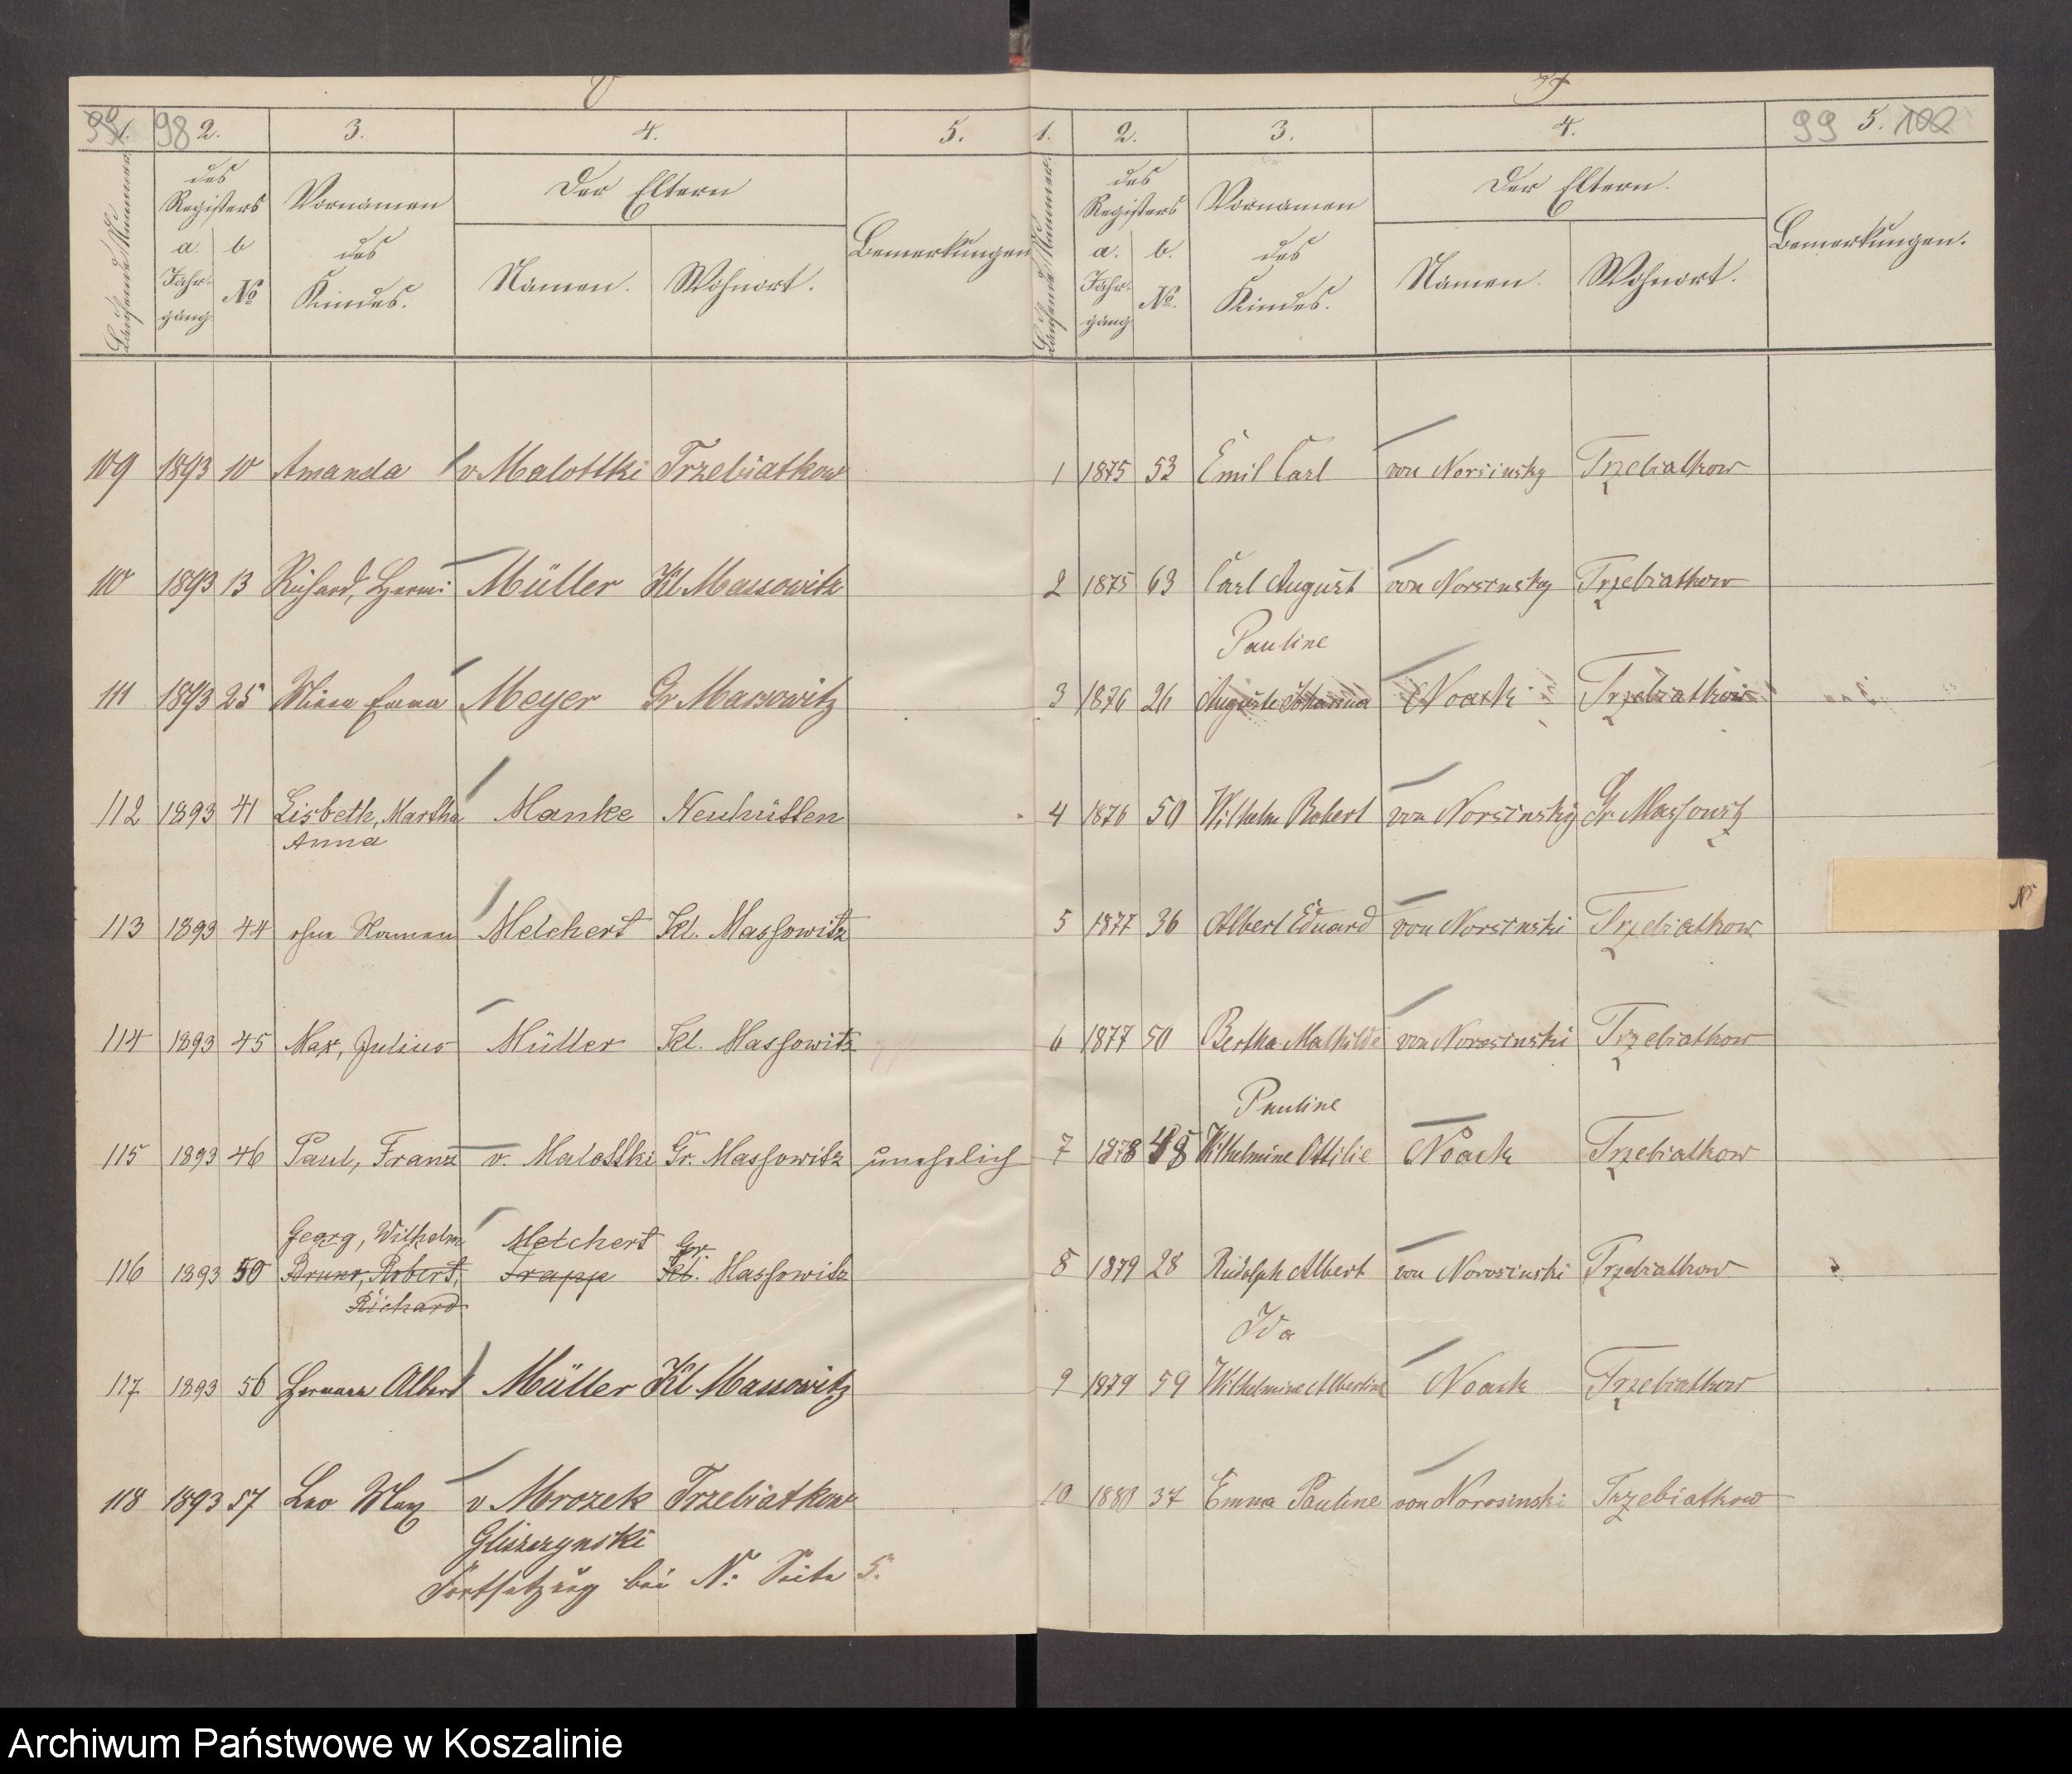 98 2. 3. 4. 5.
Laufende Nummer
des Registers
a. Jahrgang
b № 
Vornamen des Kindes.
Der Eltern
Namen. Wohnort.
Bemerkungen
109 1893 10 Amanda v Malottki Trzebiatkow
110 1893 13 Richard, Herm: Müller Kl Massowitz
111 1893 25 Emma Meyer Gr Massowitz
112 1893 41 Lisbeth, Martha Manke Neuhütten
Anna
113 1893 44 ohne Namen Melchert Kl. Massowitz
114 1893 45 Max, Julius Müller Kl. Massowitz
115 1893 46 Paul, Franz v. Malottki Gr. Massowitz unehelich
Georg, Wilhelm Melchert Gr.
116 1893 50 Bruno, Robert, Trapp Kl. Massowitz
Richard
117. 1893 56 Hermann Albert Müller Kl Massowitz
118 1893 57 Leo Max v Mrozek Trzebiatkow
Gliszczynski
Fortsetzung bei N: Seite 5.
1. 2. 3. 4. 99 5. 100
Laufende Nummer.
des Registers
a. Jahrgang
b. №.
Vornamen des Kindes.
Der Eltern.
Namen. Wohnort.
Bemerkungen.
1 1875 53 Emil Carl von Norsinsky Trzebiatkow
2 1875 63 Carl August von Norsinsky Trzebiatkow
Pauline
3 1876 26 Auguste Johanna Noack Trzebiatkow
4 1876 50 Wilhelm Robert von Norsinsky Gr Massowitz
5 1877 36 Albert Eduard von Norsinski Trzebiatkow
6 1877 50 Bertha Mathilde von Norosinski Trzebiatkow
Pauline
7 1878 48 Wilhelmine Ottilie Noack Trzebiatkow
8 1879 28 Rudolph Albert von Norosinski Trzebiatkow
Ida
9 1879 59 Wilhelmine Albertine Noack Trzebiatkow
10 1880 37 Emma Pauline von Norosinski Trzebiatkow
Archiwum Państwowe w Koszalinie